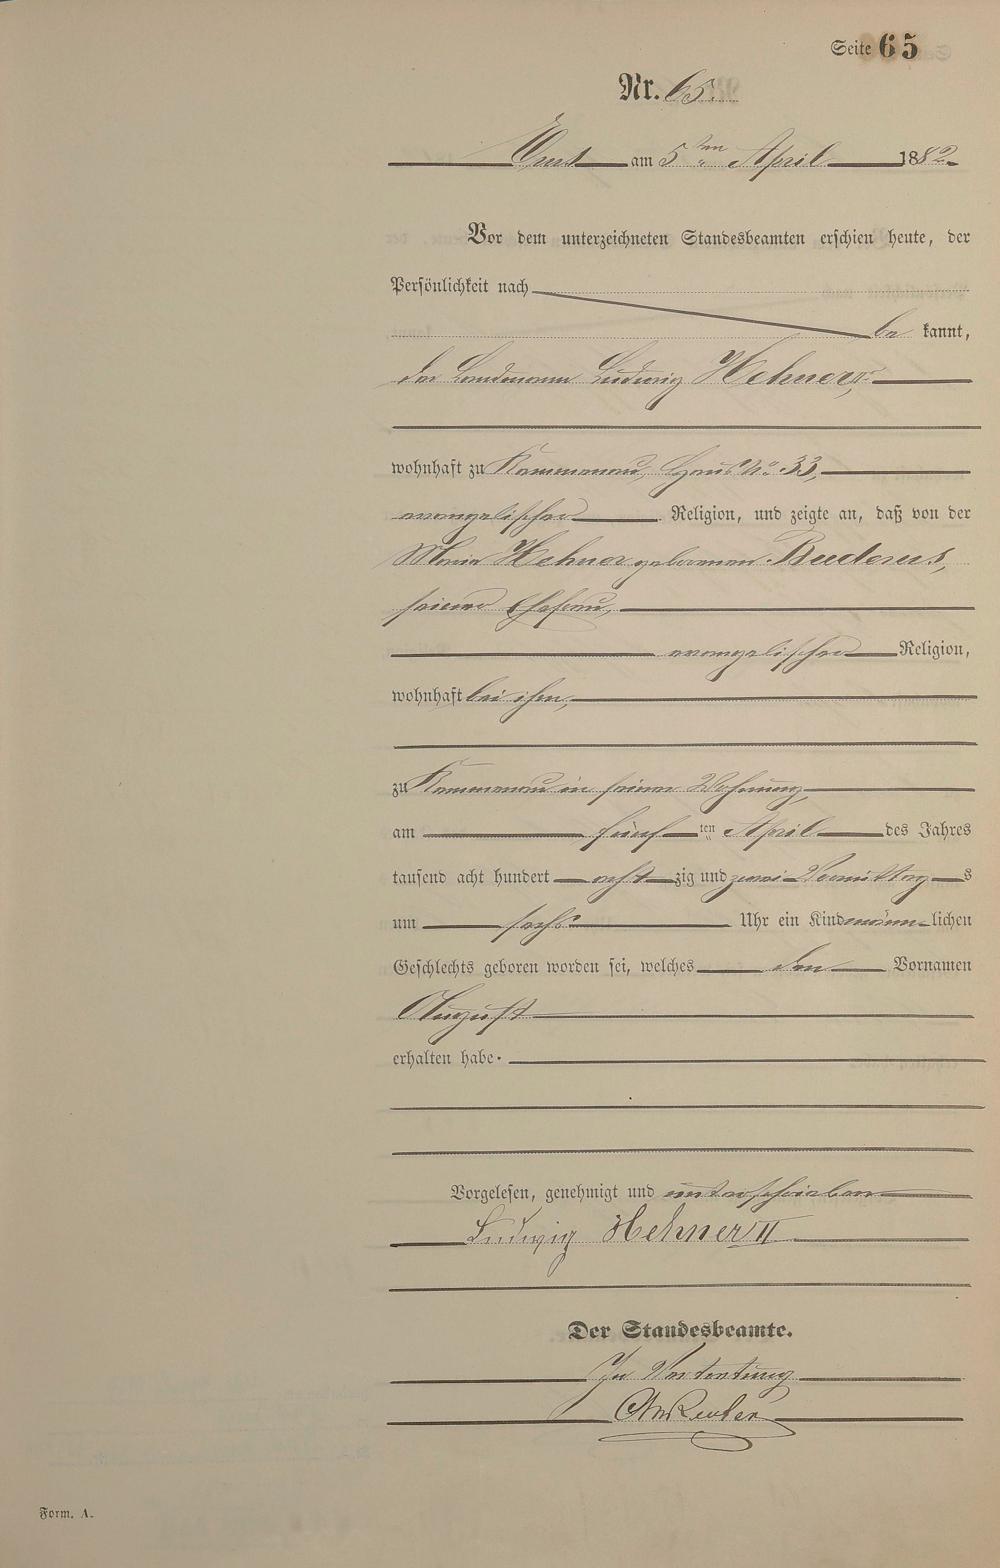 Seite 65
Nr. 65.
Ems am 5ten April 1882.
Vor dem unterzeichneten Standesbeamten erschien heute, der
Persönlichkeit nach
be kannt,
der Landmann Ludwig Hehner II,
wohnhaft zu Kemmenau, Haus No. 33,
evangelischer Religion, und zeigte an, daß von der
Maria Hehner geborenen Buderus,
seiner Ehefrau,
evangelischer Religion,
wohnhaft bei ihm,
zu Kemmenau in seiner Wohnung
am fünf ten April des Jahres
tausend acht hundert acht zig und zwei Vormittag s
um sechs Uhr ein Kind männ lichen
Geschlechts geboren worden sei, welches den Vornamen
August
erhalten habe.
Vorgelesen, genehmigt und unterschrieben
Ludwig Hehner II
Der Standesbeamte.
In Vertretung
Form. A.